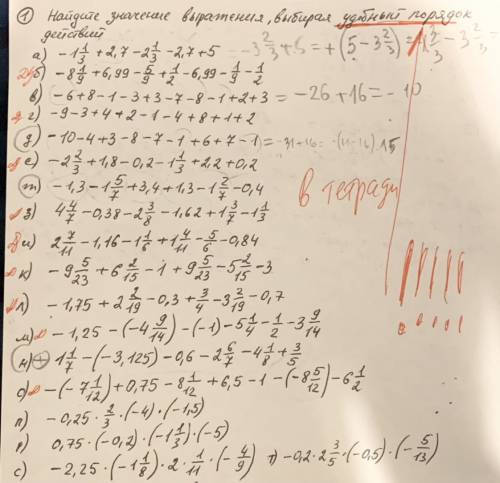 ① Найдите значение выражения, выбирая удобный порядок
действий
а) -1 1/3 + 2,7 - 2 1/3 - 2,7 + 5   -3 2/3 + 5 = + (5 - 3 2/3) =
б) -8 1/9 + 6,99 - 5/9 + 1/2 - 6,99 - 1/9 - 1/2
в) -6+8-1-3+3-7-8-1+2+3 = -26+16 = -10
г) -9-3+4+2-1-4+8+1+2
д) -10-4+3-8-7-1+6+7-1) = -31+16= -(31-16) 15
е) -2 2/3 + 1,8 - 0,2 - 1 1/3 + 2,2 + 0,2
ж) -1,3 - 1 5/7 + 3,4 + 1,3 - 1 2/7 - 0,4
в тетради
з) 4 4/7 - 0,38 - 2 3/8 - 1,62 + 1 3/7 - 1 1/3
и) 2 7/11 - 1,16 - 1 1/6 + 1 4/11 - 5/6 - 0,84
к) -9 5/23 + 6 2/15 - 1 + 9 5/23 - 5 2/15 - 3
л) -1,75 + 2 2/19 - 0,3 + 3/4 - 3 2/19 - 0,7
м) -1,25 - (-4 9/14) - (-1) - 5 1/4 - 1/2 - 3 9/14
н) 1 1/7 - (-3,125) - 0,6 - 2 6/7 - 4 1/8 + 3/5
о) -(-7 1/12) + 0,75 - 8 1/12 + 6,5 - 1 - (-8 5/12) - 6 1/2
п) -0,25 · 2/3 · (-4) · (-1,5)
р) 0,75 · (-0,2) · (-1 1/3) · (-5)
с) -2,25 · (-1 1/8) · 2 · 1/11 · (-4/9)   т) -0,2 · 2 3/5 · (-0,5) · (-5/13)